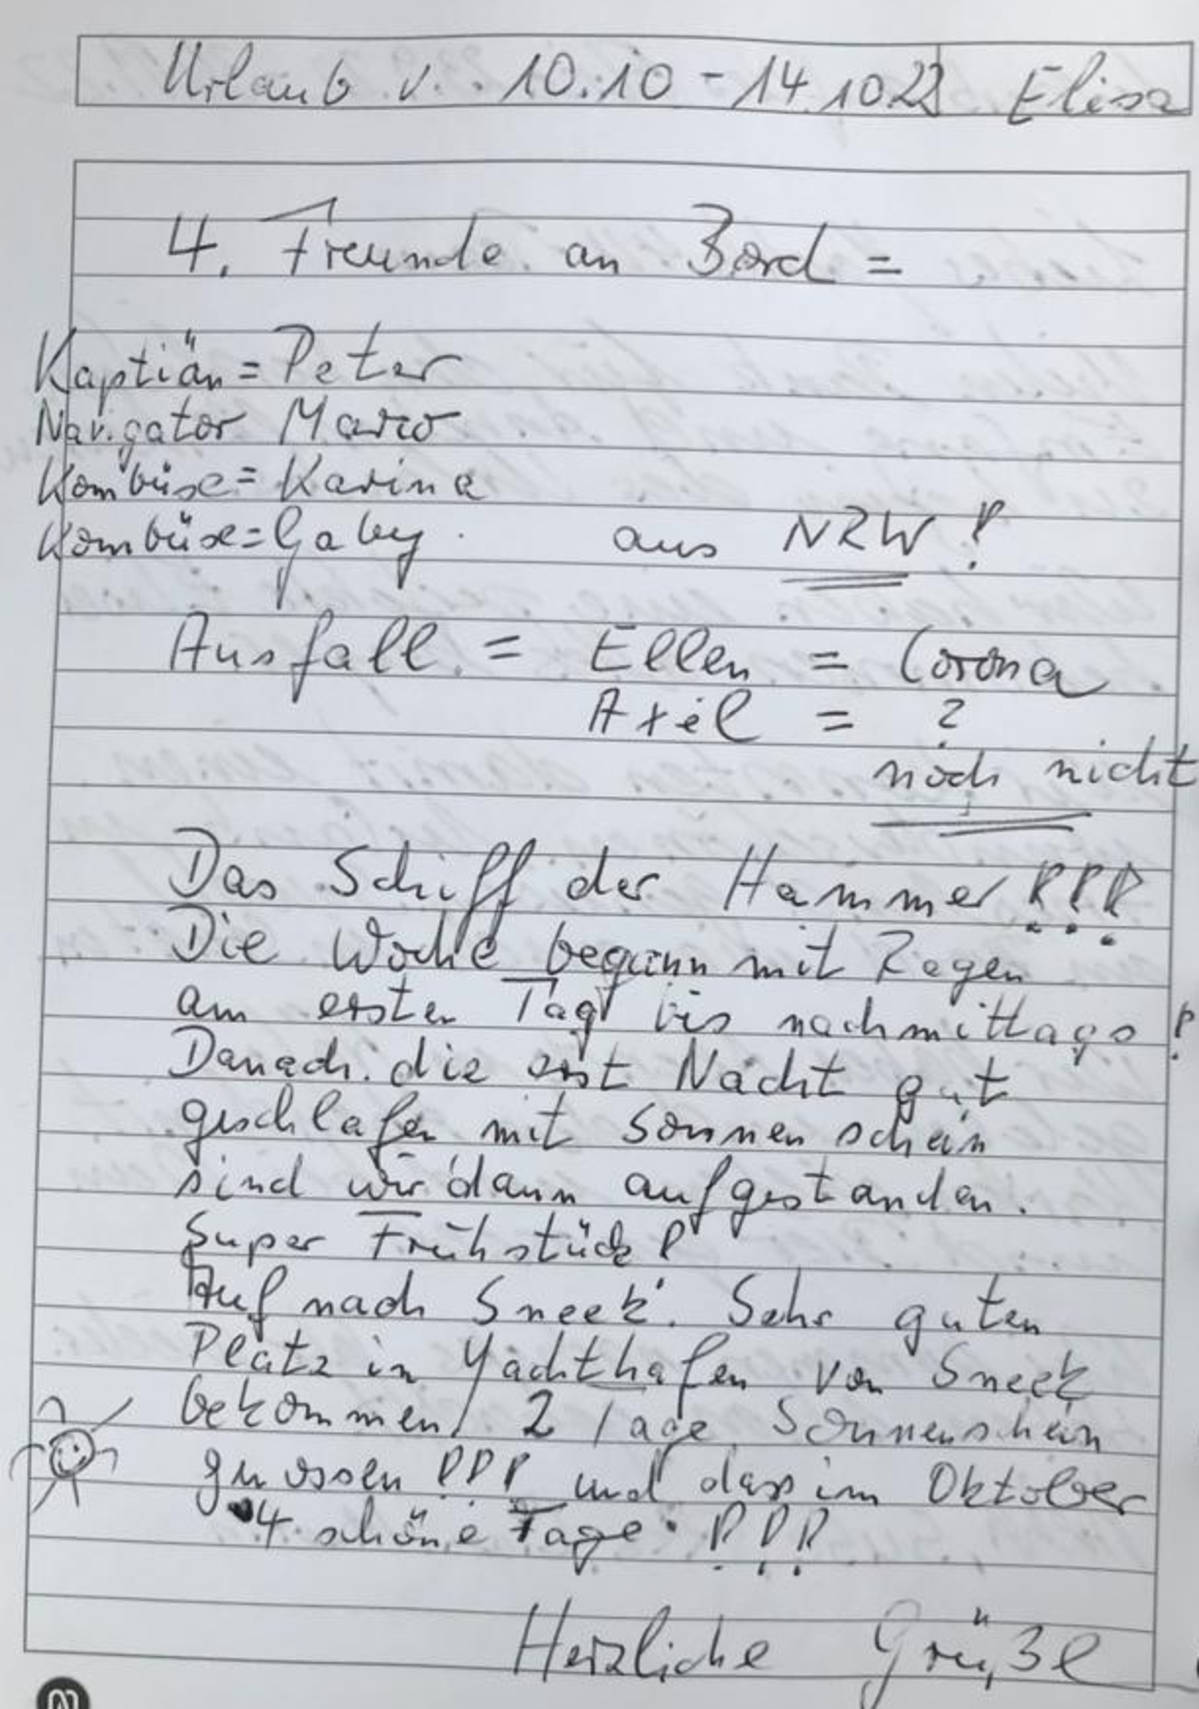 Urlaub v. 10.10 - 14.10.22 Elisa
4. Freunde an Bord =
Kaptiän = Peter
Navigator Marco
Kombüse = Karina
Kombüse = Gaby aus NRW!
Ausfall = Ellen = Corona
Axel = ?
noch nicht
Das Schiff der Hammer !!!
Die Woche begann mit Regen
am ersten Tag bis nachmittags!
Danach die erst Nacht gut
geschlafen mit Sonnenschein
sind wir dann aufgestanden.
Super Frühstück!
Auf nach Sneek. Sehr guten
Platz in Yachthafen von Sneek
bekommen, 2 Tage Sonnenschein
genossen !!! und dass im Oktober
4 schöne Tage. !!!
Herzliche Grüße